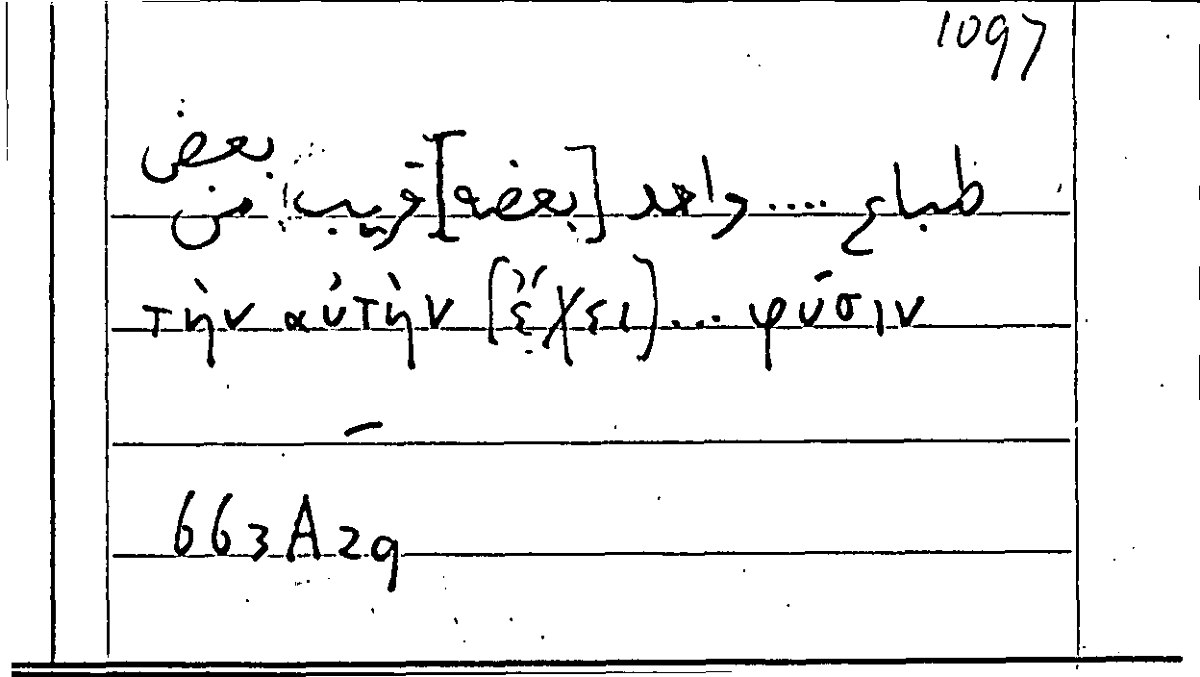 1097
طباع .... واحد [بعضه] قريب من
بعض
τὴν αὐτὴν (ἔχει)... φύσιν
663A29